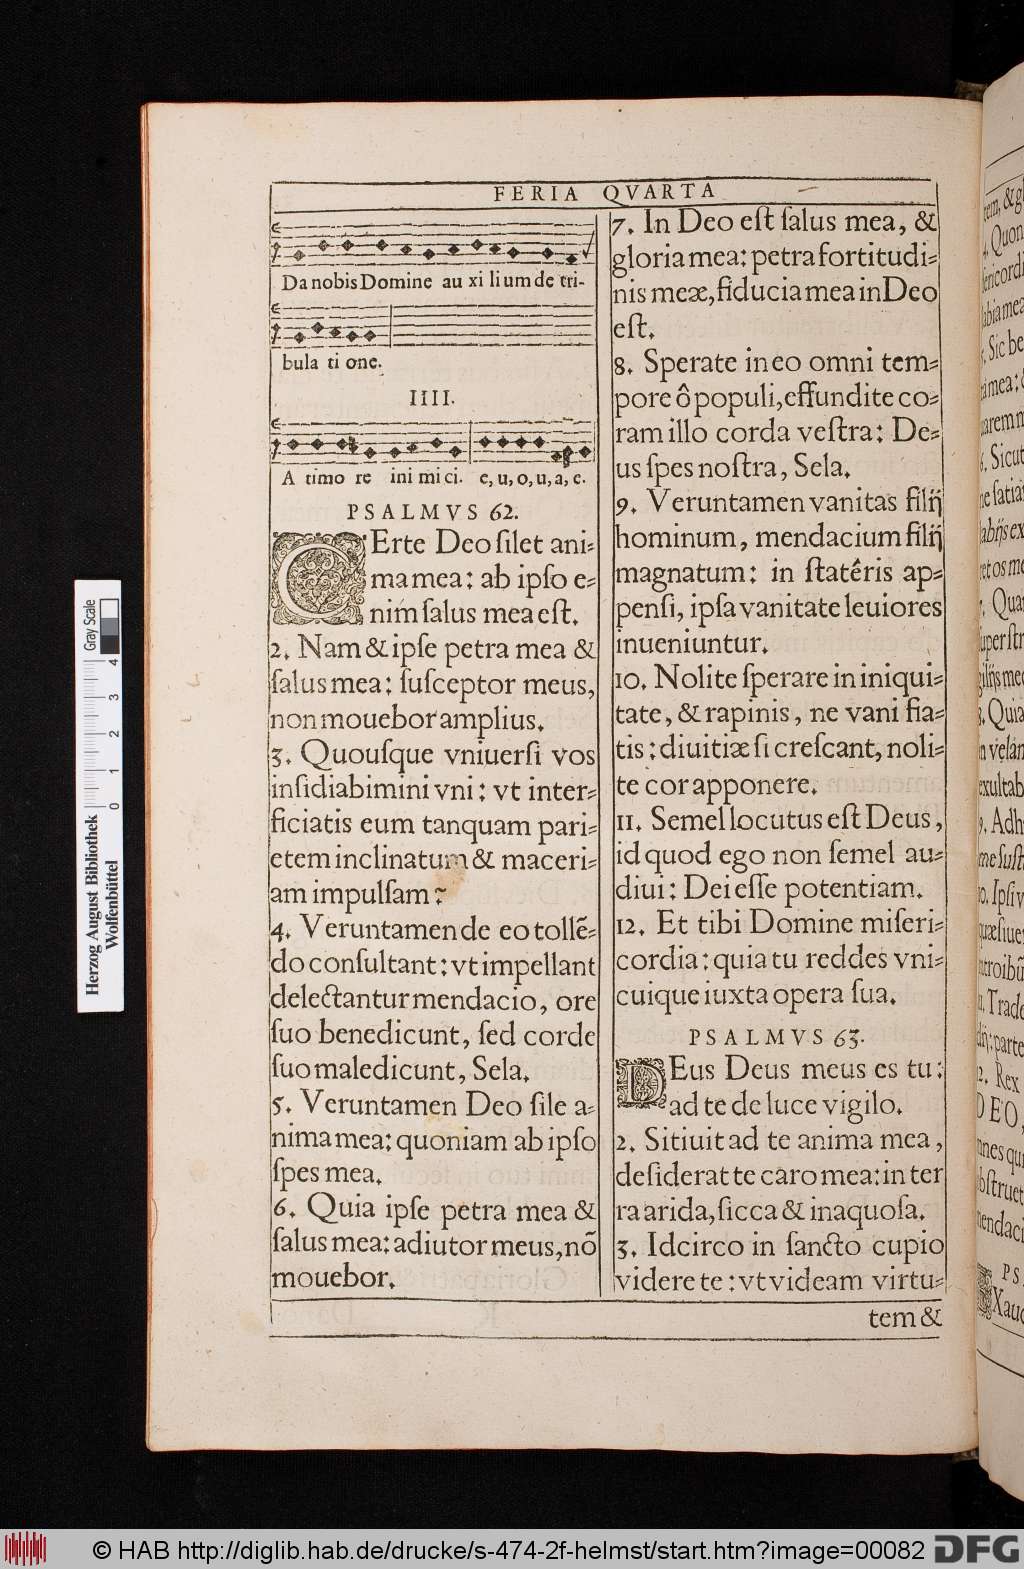 FERIA QVARTA
Da nobis Domine au xi li um de tri-
bula ti one.
IIII.
A timo re ini mi ci. e, u, o, u, a, e.
PSALMVS 62.
CErte Deo ſilet ani=
ma mea: ab ipſo e=
nim ſalus mea eſt.
2. Nam & ipſe petra mea &
ſalus mea: ſuſceptor meus,
non mouebor amplius.
3. Quouſque vniuerſi vos
inſidiabimini vni: vt inter=
ficiatis eum tanquam pari=
etem inclinatum & maceri=
am impulſam?
4. Veruntamen de eo tollē=
do conſultant: vt impellant
delectantur mendacio, ore
ſuo benedicunt, ſed corde
ſuo maledicunt, Sela.
5. Veruntamen Deo ſile a=
nima mea: quoniam ab ipſo
ſpes mea.
6. Quia ipſe petra mea &
ſalus mea: adiutor meus, nō
mouebor.
7. In Deo eſt ſalus mea, &
gloria mea: petra fortitudi=
nis meæ, fiducia mea in Deo
eſt.
8. Sperate in eo omni tem=
pore ô populi, effundite co=
ram illo corda veſtra: De=
us ſpes noſtra, Sela.
9. Veruntamen vanitas filij
hominum, mendacium filij
magnatum: in ſtatêris ap=
penſi, ipſa vanitate leuiores
inueniuntur.
10. Nolite ſperare in iniqui=
tate, & rapinis, ne vani fia=
tis: diuitiæ ſi creſcant, noli=
te cor apponere.
11. Semel locutus eſt Deus,
id quod ego non ſemel au=
diui: Dei eſſe potentiam.
12. Et tibi Domine miſeri=
cordia: quia tu reddes vni=
cuique iuxta opera ſua.
PSALMVS 63.
DEus Deus meus es tu:
ad te de luce vigilo.
2. Sitiuit ad te anima mea,
deſiderat te caro mea: in ter
ra arida, ſicca & inaquoſa.
3. Idcirco in ſancto cupio
videre te: vt videam virtu=
tem &
Herzog August Bibliothek
Wolfenbüttel
Gray Scale
0 1 2 3 4
© HAB http://diglib.hab.de/drucke/s-474-2f-helmst/start.htm?image=00082
DFG